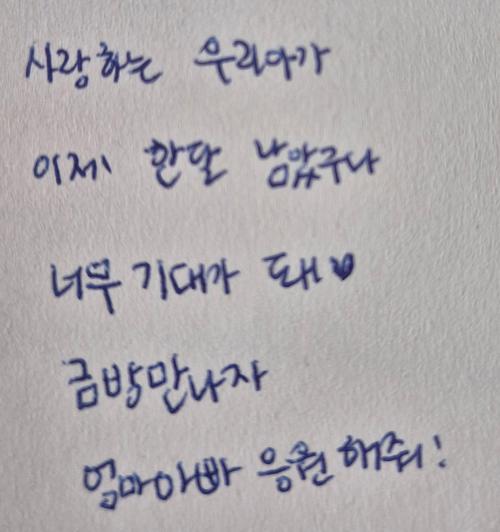 사랑하는 우리아가
이제 한달 남았구나
너무 기대가 돼♥
금방만나자
엄마아빠 응원해줘!